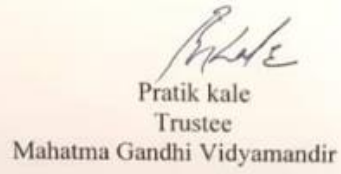 Pratik kale
Trustee
Mahatma Gandhi Vidyamandir